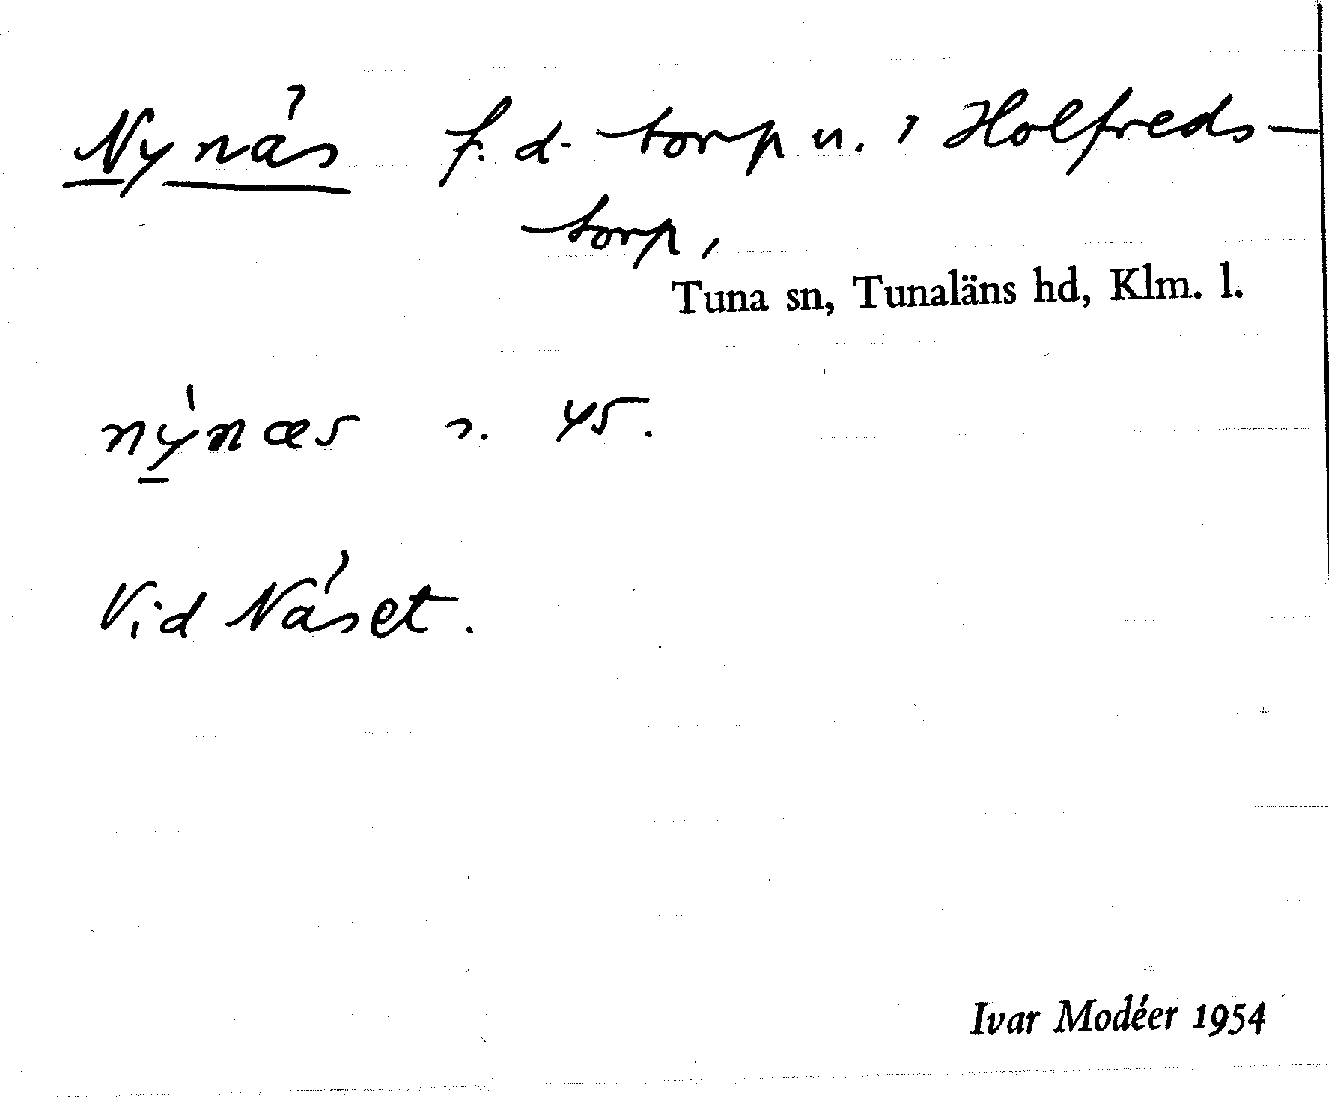 Nynäs f. d. torp u. , Holfreds-
torp,
Tuna sn, Tunaläns hd, Klm. l.
nýnæs s. 45.
Vid Näset.
Ivar Modéer 1954